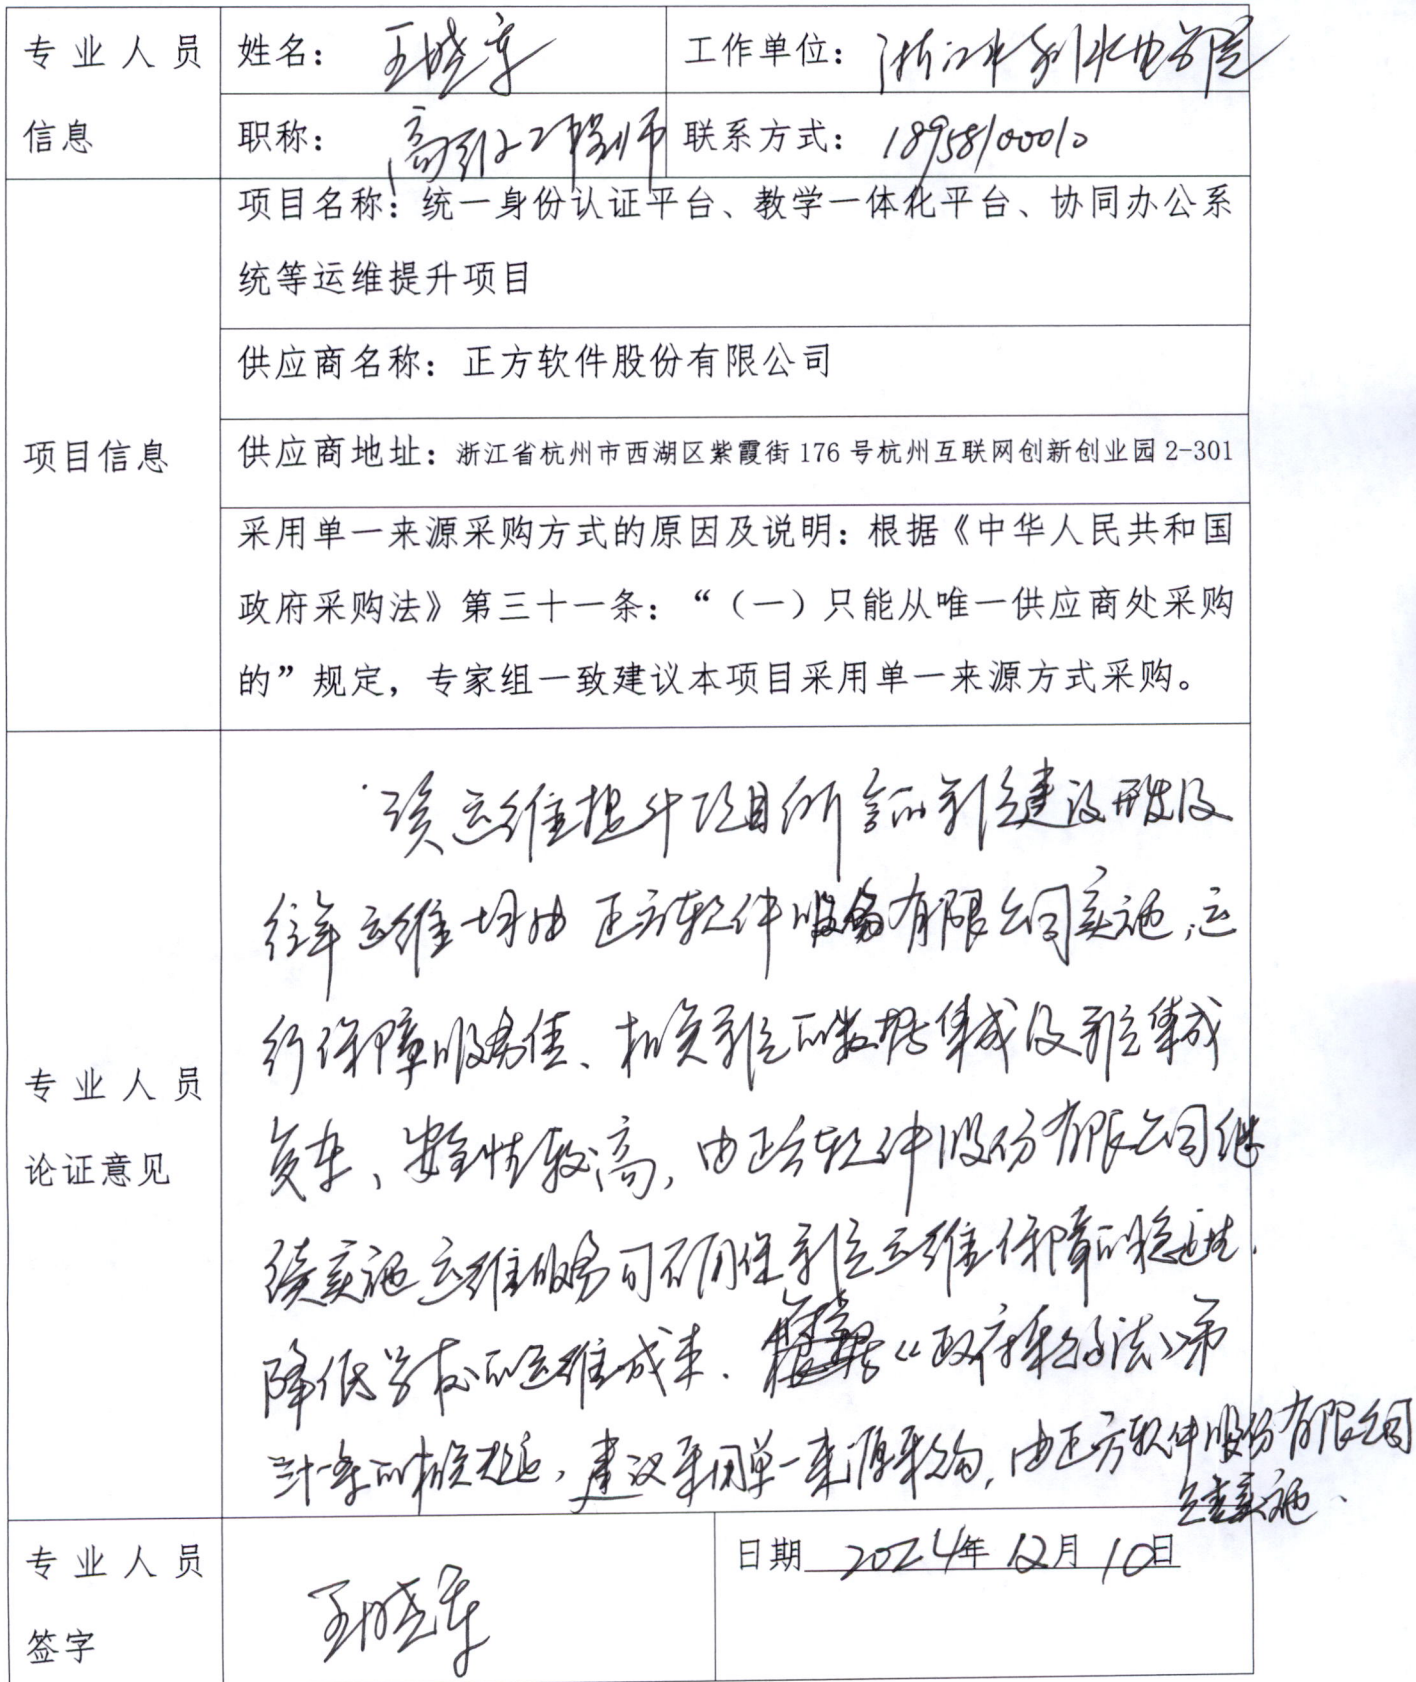 专业人员
信息
姓名： 王晓军
工作单位： 浙江水利水电学院
职称： 高级工程师
联系方式： 18958100010
项目信息
项目名称：统一身份认证平台、教学一体化平台、协同办公系
统等运维提升项目
供应商名称：正方软件股份有限公司
供应商地址：浙江省杭州市西湖区紫霞街 176 号杭州互联网创新创业园 2-301
采用单一来源采购方式的原因及说明：根据《中华人民共和国
政府采购法》第三十一条：“（一）只能从唯一供应商处采购
的”规定，专家组一致建议本项目采用单一来源方式采购。
专业人员
论证意见
该运维提升项目所含的系统建设开发及
往年运维均由正方软件股份有限公司实施，运
行保障服务佳、相关系统的数据集成及系统集成
复杂、安全性较高，由正方软件股份有限公司继
续实施运维服务可确保系统运维保障的稳定性，
降低学校的运维成本。根据《政府采购法》第
三十一条的相关规定，建议采用单一来源采购，由正方软件股份有限公司
实施。
专业人员
签字
王晓军
日期 2024年 12月 10日